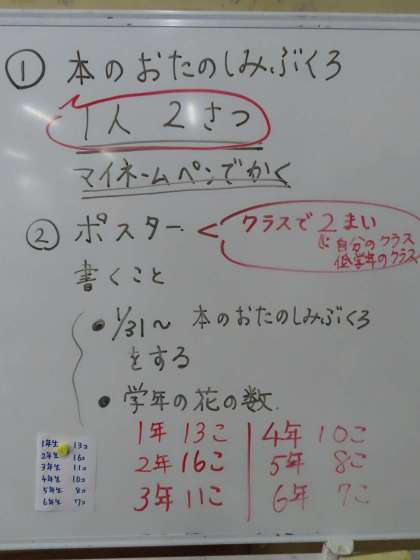 ① 本のおたのしみぶくろ
1人 2さつ
マイネームペンでかく
② ポスター
クラスで2まい
自分のクラス
低学年のクラス
書くこと
● 1/31～ 本のおたのしみぶくろ
をする
● 学年の花の数
1年 13こ
2年 16こ
3年 11こ
4年 10こ
5年 8こ
6年 7こ
1年生 13コ
2年生 16コ
3年生 11コ
4年生 10コ
5年生 8コ
6年生 7コ